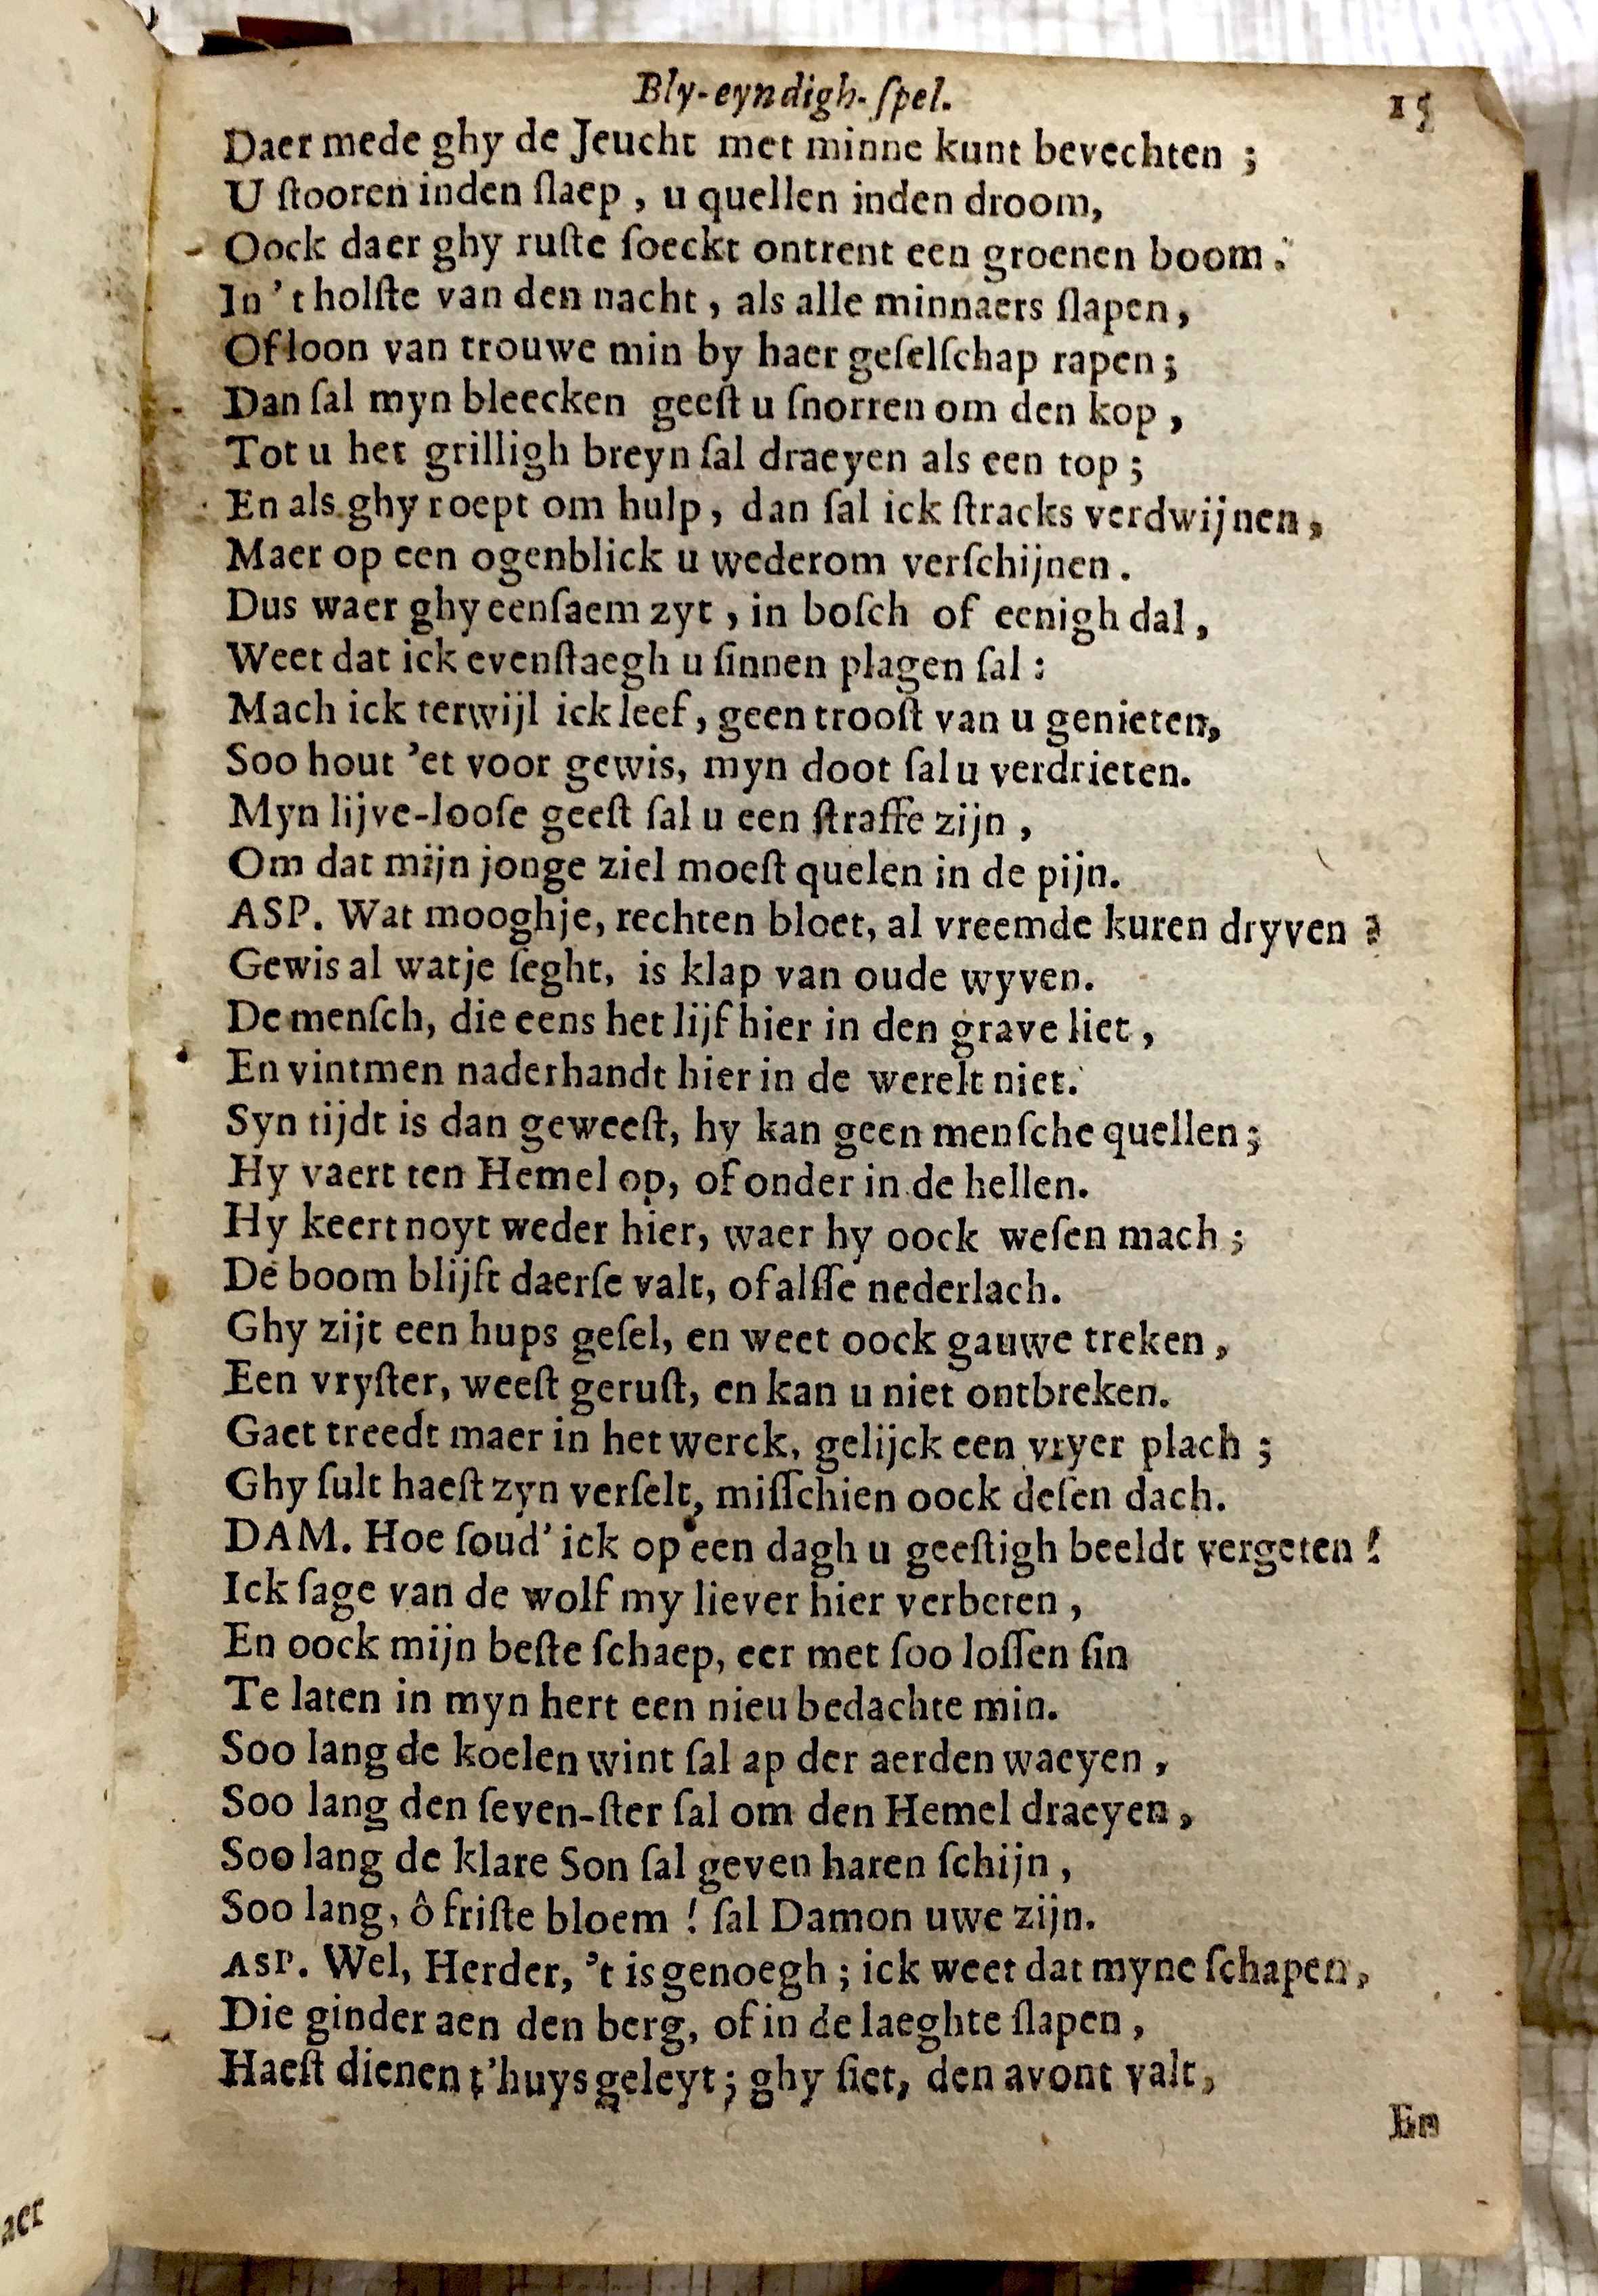 Bly-eyndigh-ſpel. 15
Daer mede ghy de Jeucht met minne kunt bevechten ;
U ſtooren inden ſlaep , u quellen inden droom,
Oock daer ghy ruſte ſoeckt ontrent een groenen boom.
In 't holſte van den nacht , als alle minnaers ſlapen ,
Of loon van trouwe min by haer geſelſchap rapen ;
Dan ſal myn bleecken geeſt u ſnorren om den kop ,
Tot u het grilligh breyn ſal draeyen als een top ;
En als ghy roept om hulp , dan ſal ick ſtracks verdwijnen ,
Maer op een ogenblick u wederom verſchijnen .
Dus waer ghy eenſaem zyt , in boſch of eenigh dal ,
Weet dat ick evenſtaegh u ſinnen plagen ſal :
Mach ick terwijl ick leef , geen trooſt van u genieten,
Soo hout 'et voor gewis, myn doot ſal u verdrieten.
Myn lijve-looſe geeſt ſal u een ſtraffe zijn ,
Om dat mijn jonge ziel moeſt quelen in de pijn.
ASP. Wat mooghje, rechten bloet, al vreemde kuren dryven ?
Gewis al watje ſeght, is klap van oude wyven.
De menſch, die eens het lijf hier in den grave liet ,
En vintmen naderhandt hier in de werelt niet.
Syn tijdt is dan geweeſt, hy kan geen menſche quellen ;
Hy vaert ten Hemel op, of onder in de hellen.
Hy keert noyt weder hier, waer hy oock weſen mach ;
De boom blijft daerſe valt, of alſſe nederlach.
Ghy zijt een hups geſel, en weet oock gauwe treken ,
Een vryſter, weeſt geruſt, en kan u niet ontbreken.
Gaet treedt maer in het werck, gelijck een vryer plach ;
Ghy ſult haeſt zyn verſelt, miſſchien oock deſen dach.
DAM. Hoe ſoud' ick op een dagh u geeſtigh beeldt vergeten !
Ick ſage van de wolf my liever hier verbeten ,
En oock mijn beſte ſchaep, eer met ſoo loſſen ſin
Te laten in myn hert een nieu bedachte min.
Soo lang de koelen wint ſal ap der aerden waeyen ,
Soo lang den ſeven-ſter ſal om den Hemel draeyen ,
Soo lang de klare Son ſal geven haren ſchijn ,
Soo lang, ô friſte bloem ! ſal Damon uwe zijn.
ASP. Wel, Herder, 't is genoegh ; ick weet dat myne ſchapen ,
Die ginder aen den berg, of in de laeghte ſlapen ,
Haeſt dienen t'huys geleyt ; ghy ſiet, den avont valt,
En
aer